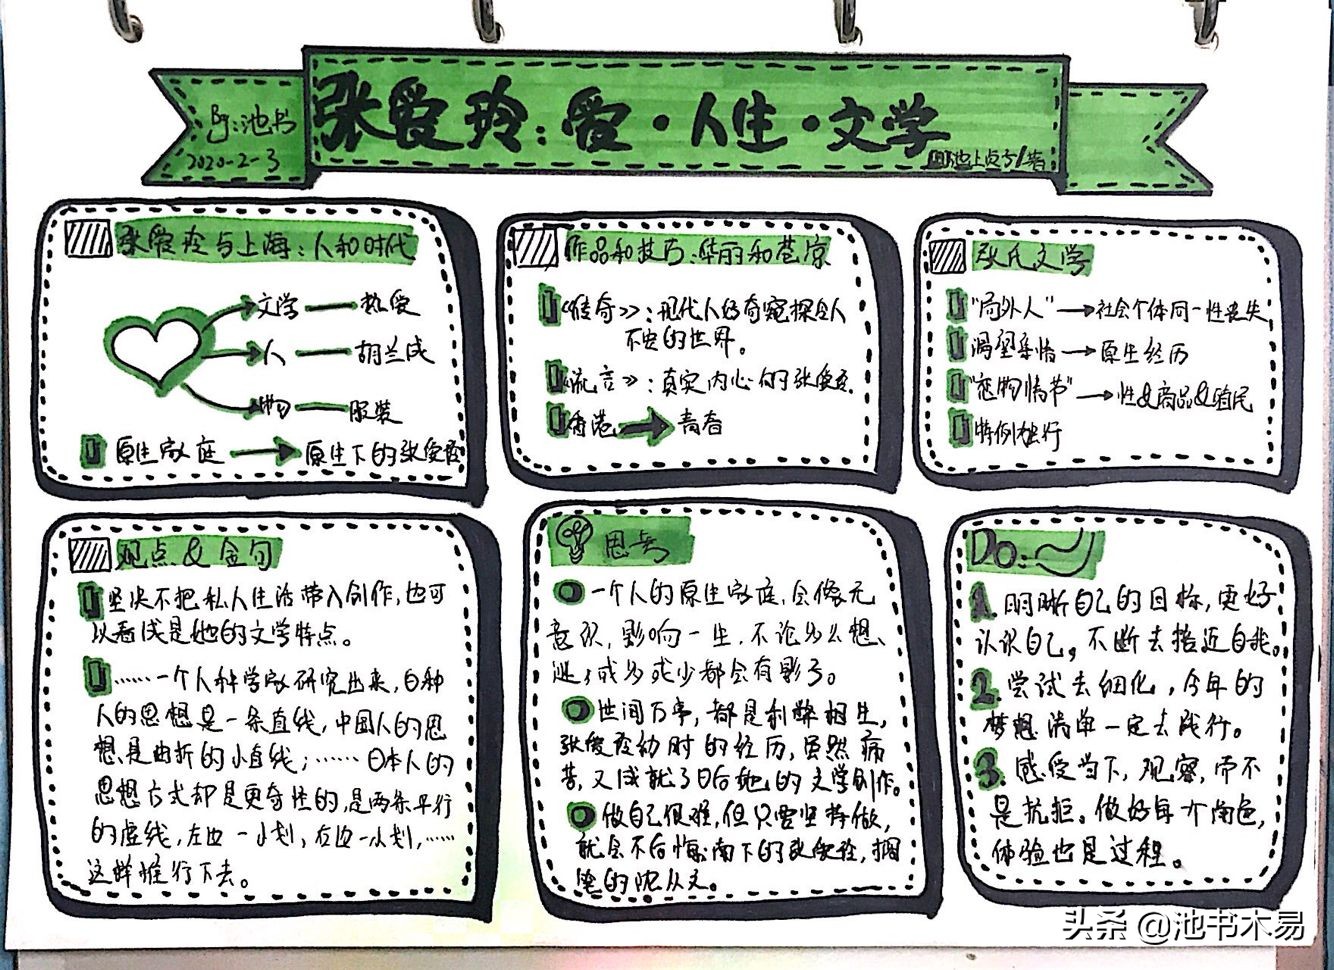 By:池书
2020-2-3
张爱玲:爱·人生·文学
池上贞子/著
张爱玲与上海:人和时代
文学——热爱
人——胡兰成
物——服装
原生家庭→原生下的张爱玲
作品和技巧:华丽和苍凉
《传奇》:现代人的奇窥探令人
不安的世界。
《流言》:真实内心的张爱玲
香港→青春
张氏文学
"局外人"→社会个体同一性丧失
渴望亲情→原生经历
"恋物情节"→性&商品&殖民
特例独行
观点&金句
坚决不把私人生活带入创作,也可
以看成是她的文学特点。
……一个人科学家研究出来,白种
人的思想是一条直线,中国人的思
想是曲折的小直线;……日本人的
思想方式却是更奇怪的,是两条平行
的虚线,左边一小划,右边一小划,……
这样推行下去。
思考
一个人的原生家庭,会像无
意识,影响一生,不论怎么想
逃,或多或少都会有影子。
世间万事,都是利弊相生,
张爱玲幼时的经历,虽然痛
苦,又成就了日后她的文学创作。
做自己很难,但只需坚持做,
就会不后悔;南下的张爱玲,搁
笔的沈从文。
DO:
1.明晰自己的目标,更好
认识自己。不断去接近自我。
2.尝试去细化,今年的
梦想清单一定去践行。
3.感受当下,观察,而不
是抗拒。做好每个角色,
体验也是过程。
头条 @池书木易